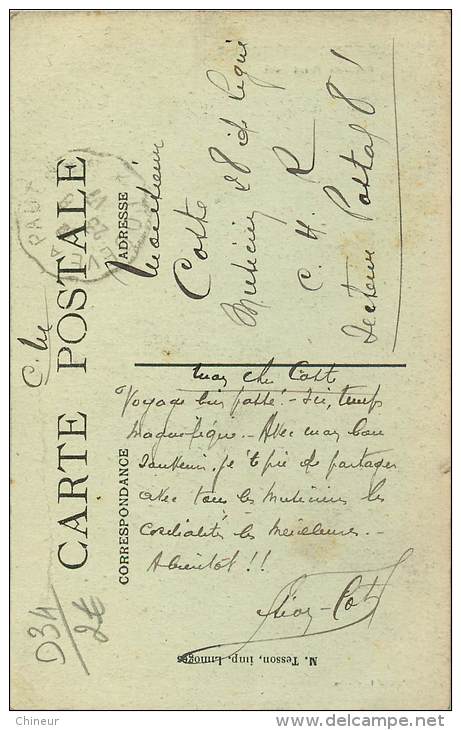 C. M
CARTE POSTALE
CORRESPONDANCE
ADRESSE
Mon cher Coste
Voyage bien passé! - Ici, temps
magnifique. - Avec mon bon
souvenir, je te prie de partager
avec tous les musiciens les
cordialités les meilleures. -
A bientôt!!
Monsieur
Coste
Musicien 28e de ligne
C. H. R
Secteur Postal 81
PAU
M. Tesson, imp. Limoges
D34
2€
Chineur
delcampe.net